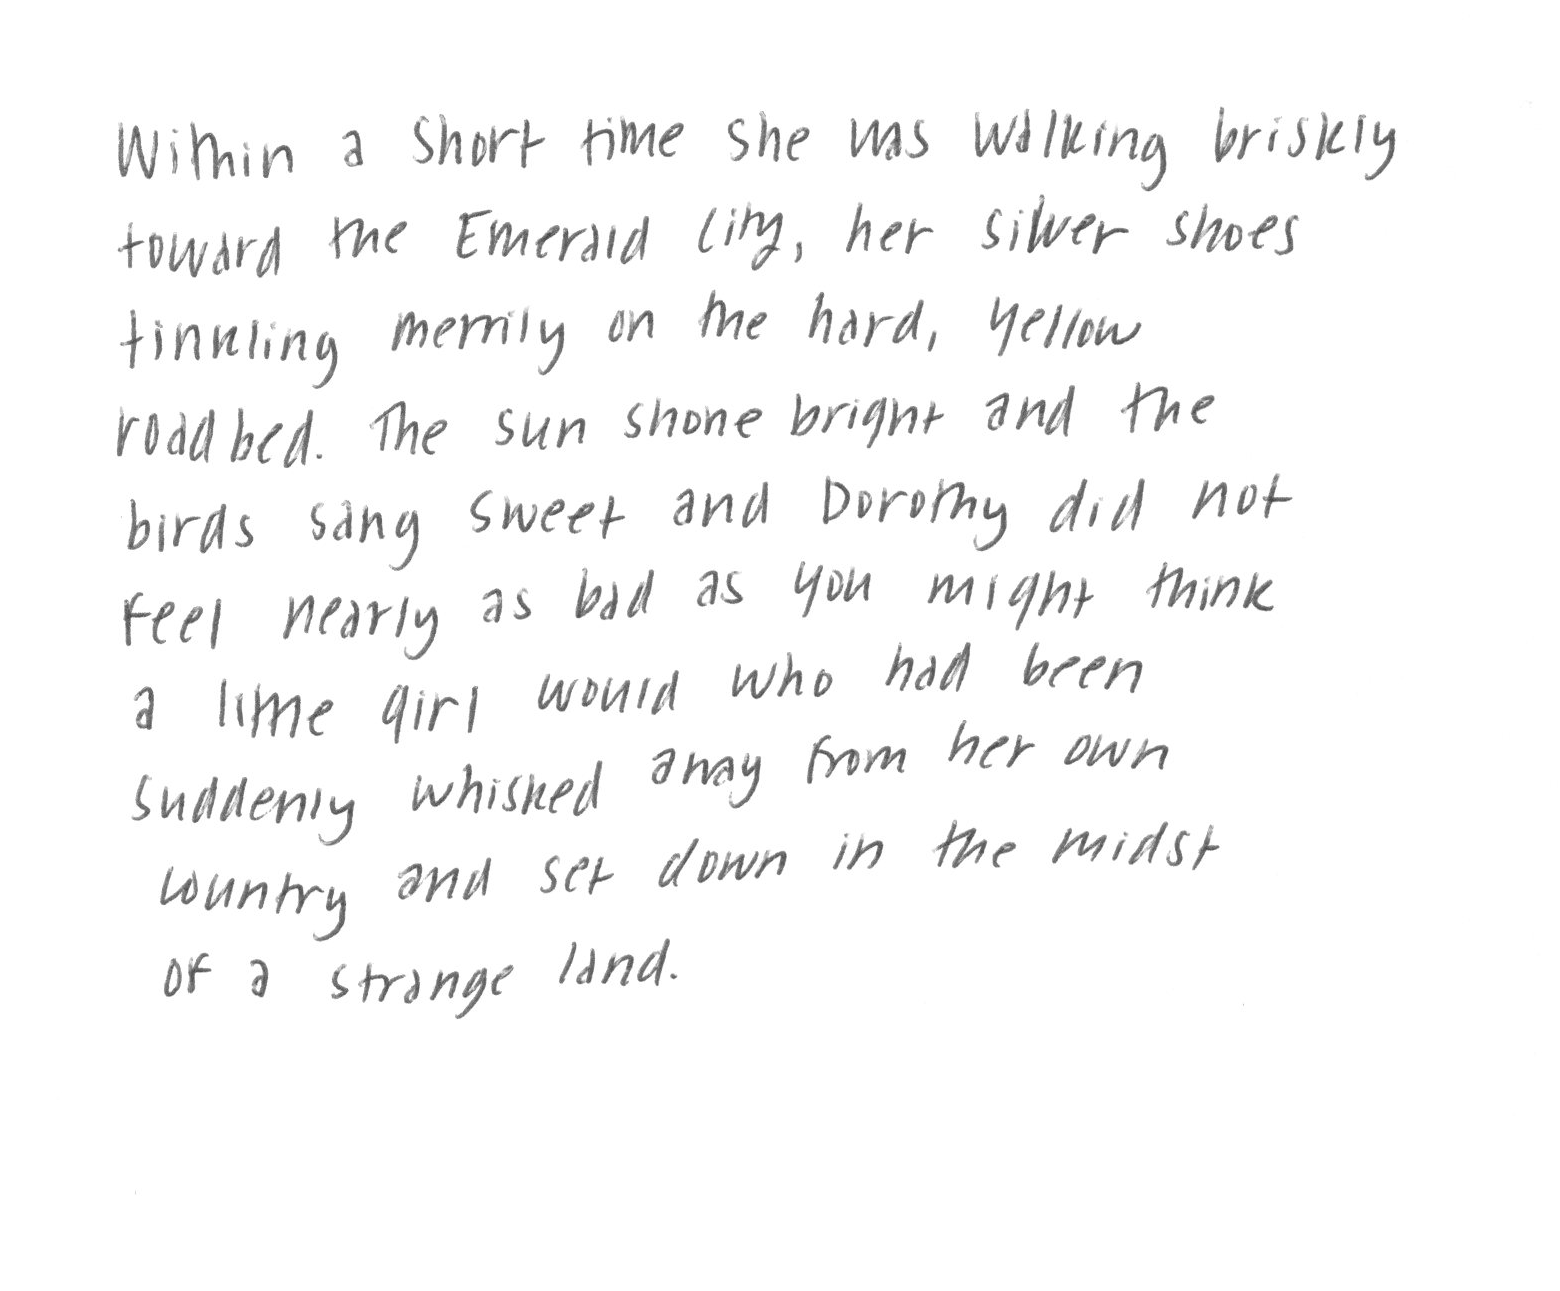 Within a short time she was walking briskly
toward the Emerald City, her silver shoes
tinkling merrily on the hard, yellow
roadbed. The sun shone bright and the
birds sang sweet and Dorothy did not
feel nearly as bad as you might think
a little girl would who had been
suddenly whisked away from her own
country and set down in the midst
of a strange land.